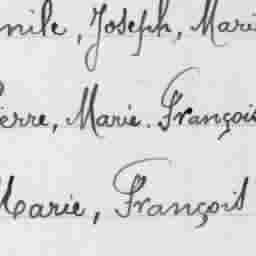 mile, Joseph, Mari
ierre, Marie. François
Marie, François